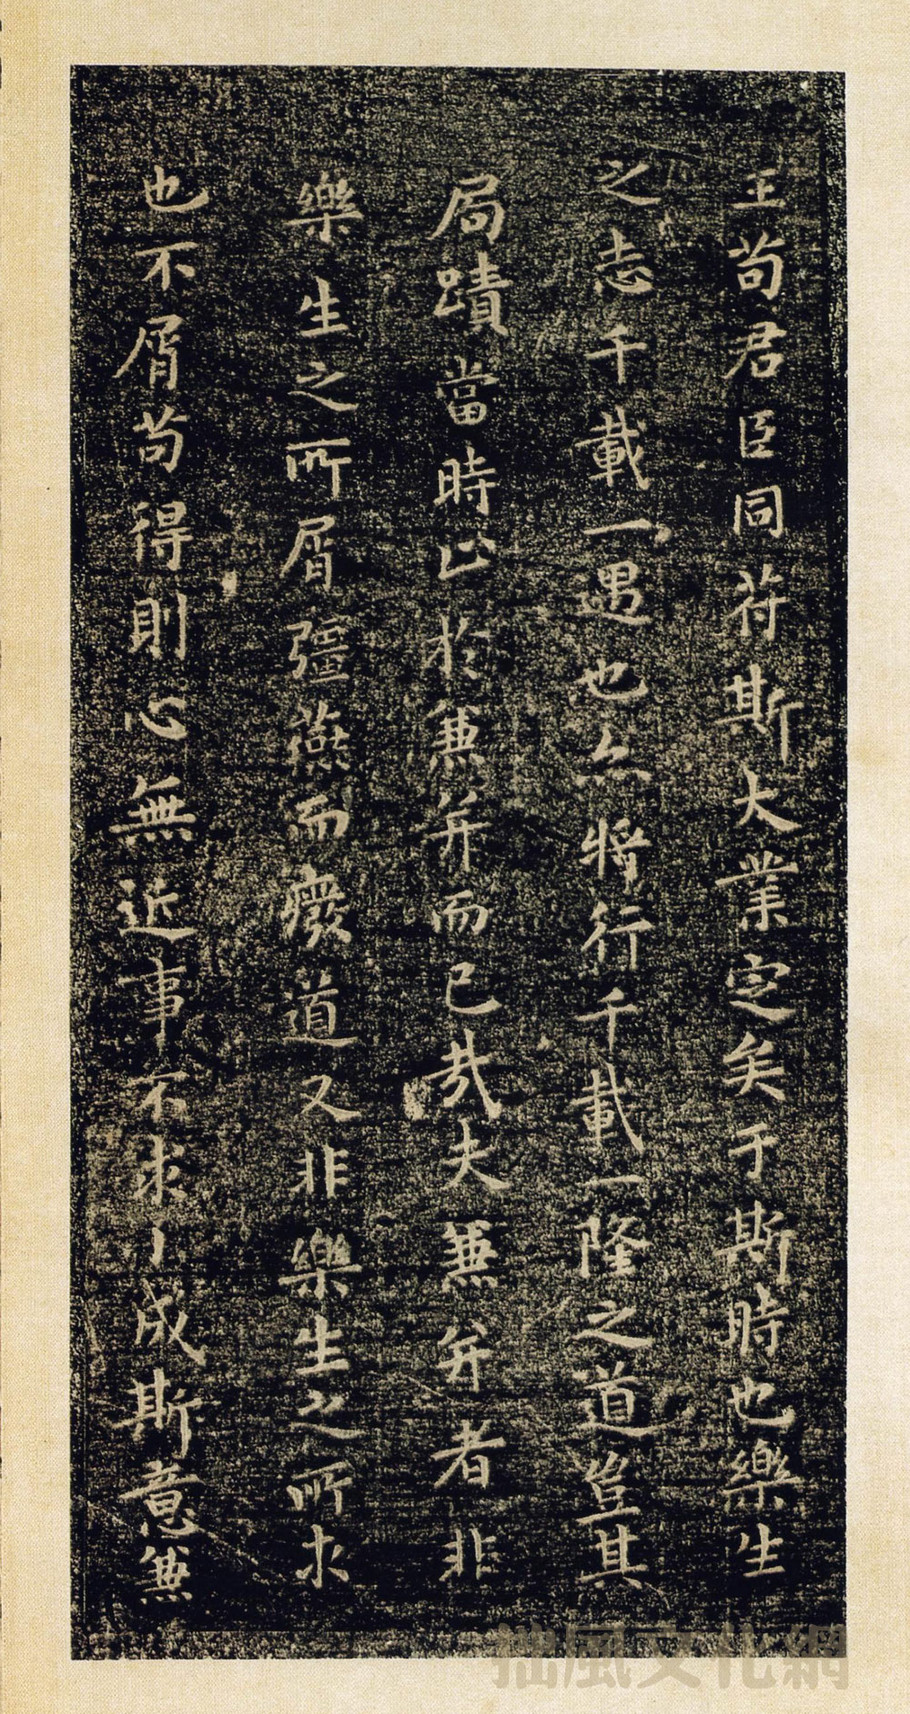 王苟君臣同符斯大業定矣于斯時也樂生
之志千載一遇也亦將行千載一隆之道豈其
局蹟當時止於兼并而已哉夫兼并者非
樂生之所屑彊燕而癈道又非樂生之所求
也不屑苟得則心無近事不求小成斯意兼
拙風文化網